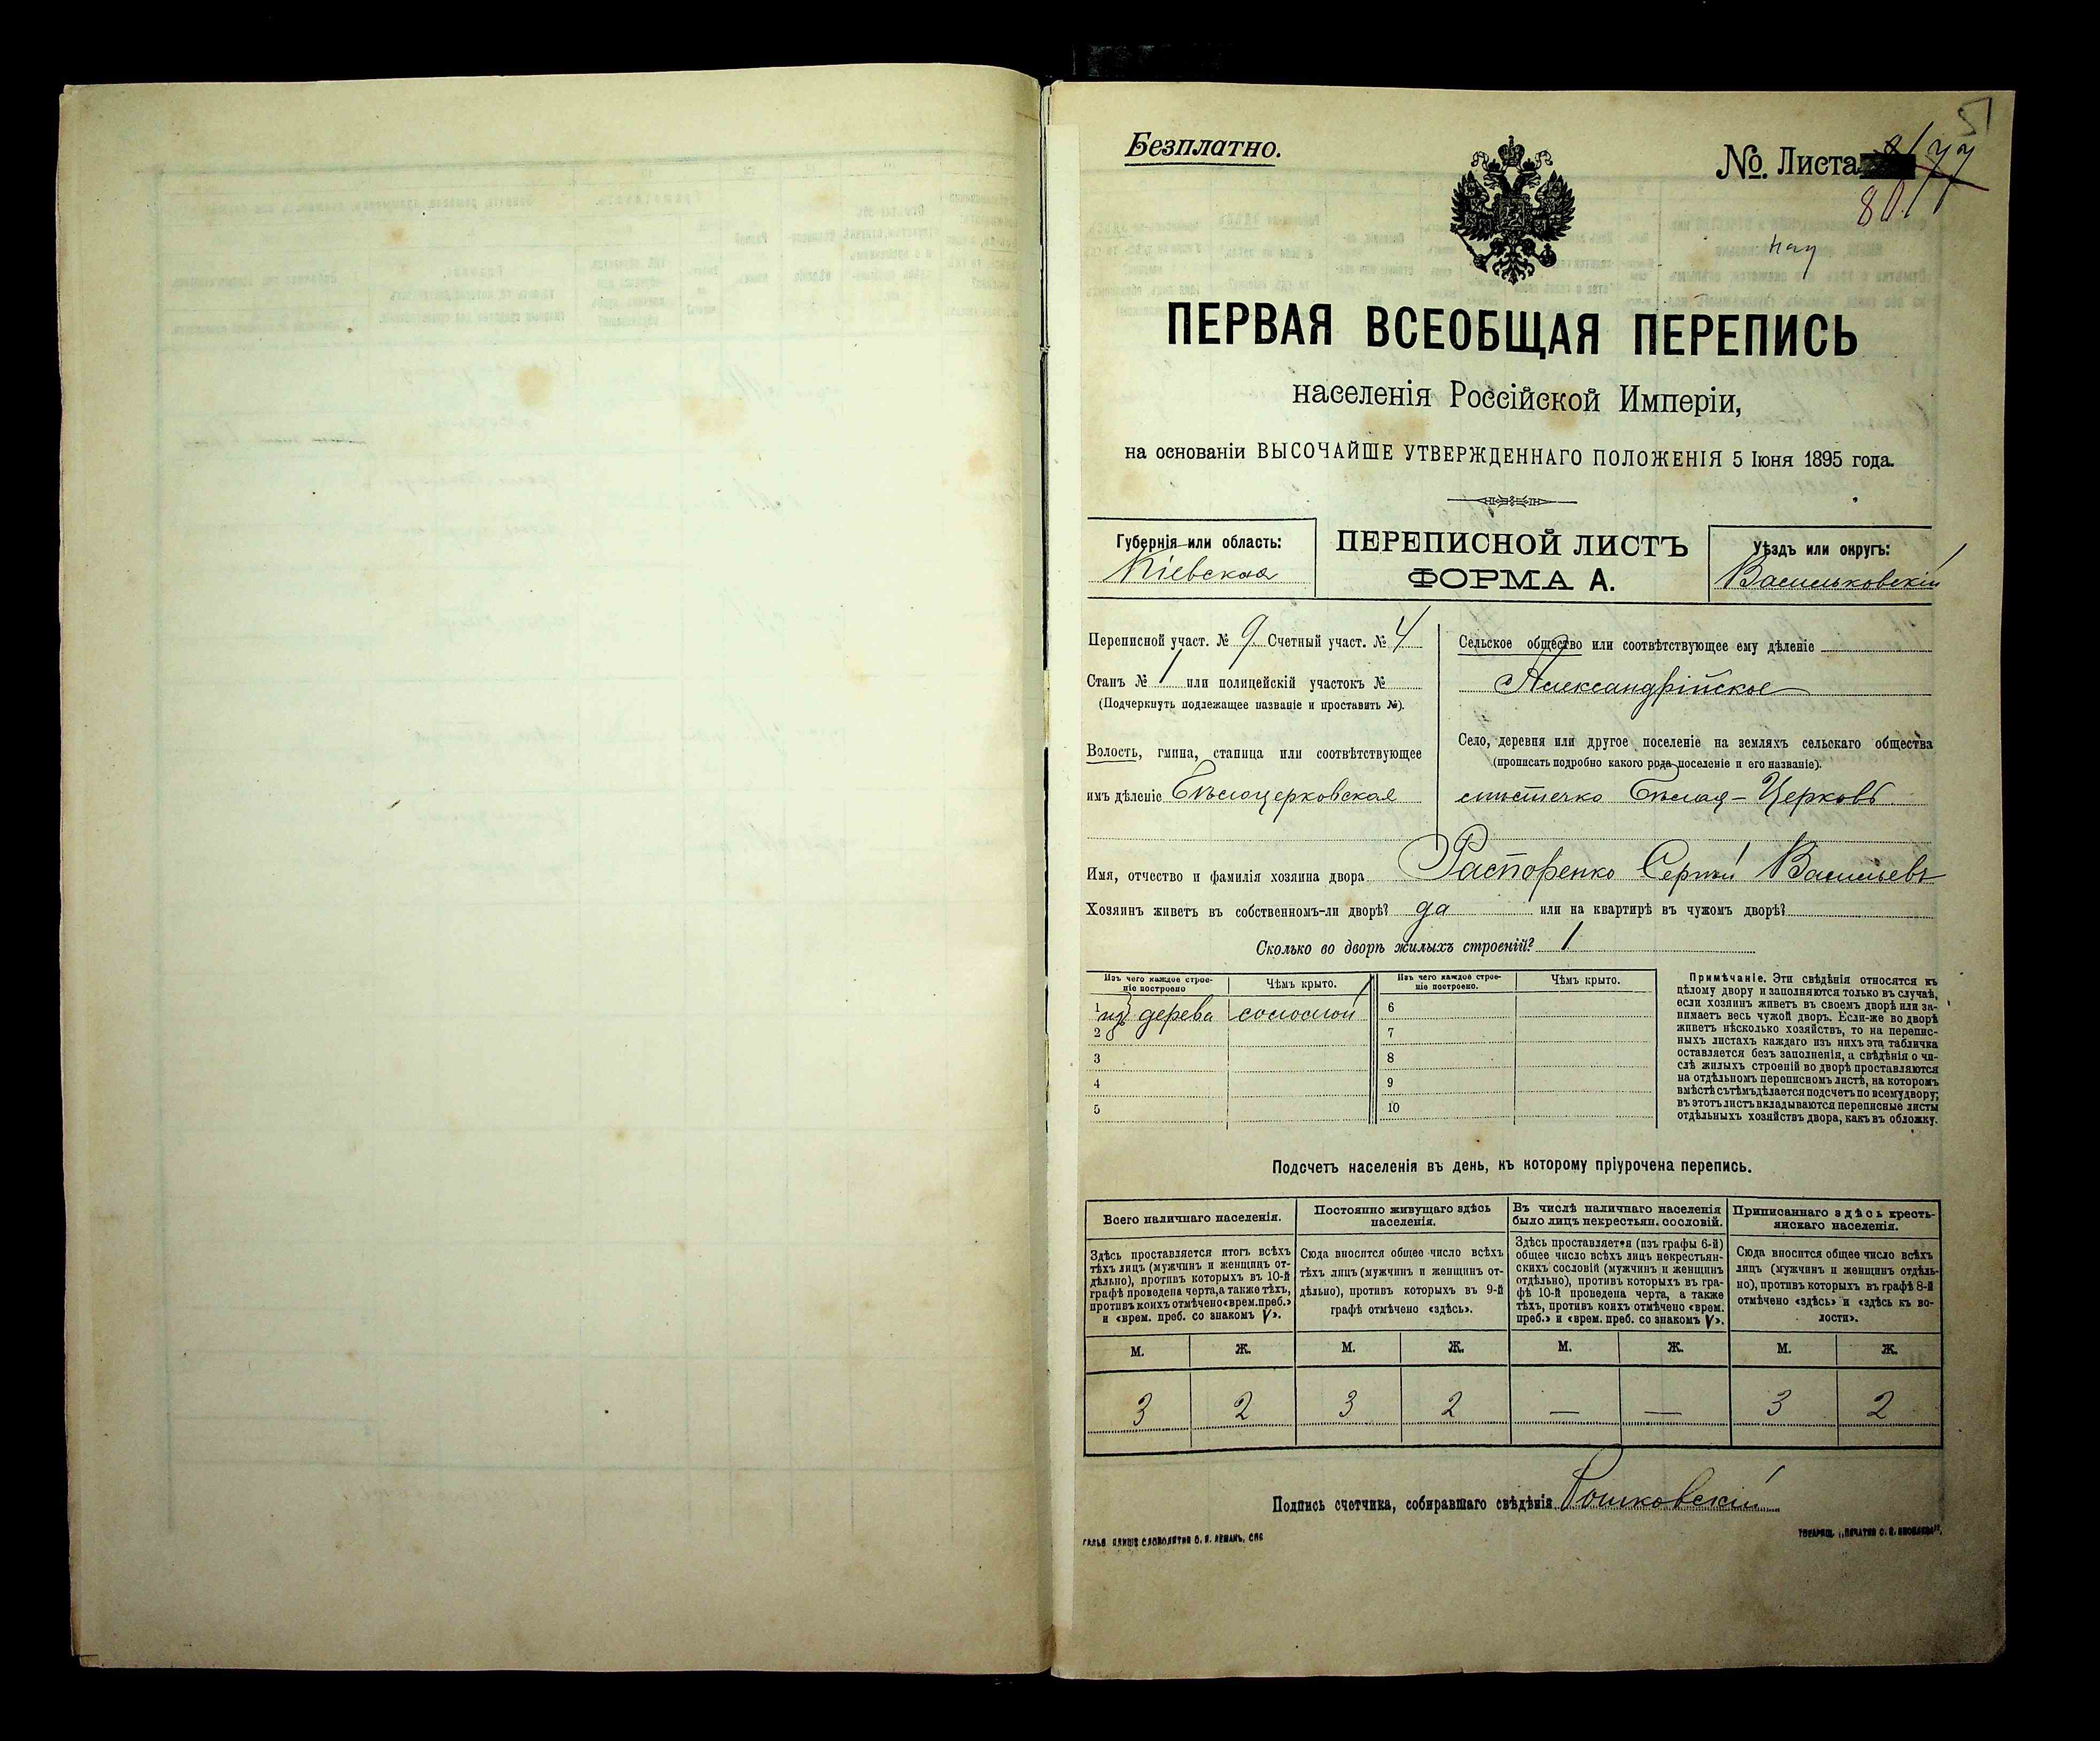 Безплатно.
№ Листа
80
ПЕРВАЯ ВСЕОБЩАЯ ПЕРЕПИСЬ
населенія Россійской Имперіи,
на основаніи ВЫСОЧАЙШЕ УТВЕРЖДЕННАГО ПОЛОЖЕНІЯ 5 Іюня 1895 года.
Губернія или область:
Кіевская
ПЕРЕПИСНОЙ ЛИСТЪ
ФОРМА А.
Уѣздъ или округъ:
Васильковскій
Переписной участ. № 9 Счетный участ. № 4
Станъ № 1 или полицейскій участокъ №
(Подчеркнуть подлежащее названіе и проставить №).
Волость, гмина, станица или соотвѣтствующее
имъ дѣленіе Бѣлоцерковская
Сельское общество или соотвѣтствующее ему дѣленіе
Александрійское
Село, деревня или другое поселеніе на земляхъ сельскаго общества
(прописать подробно какого рода поселеніе и его названіе).
мѣстечко Бѣлая-Церковь
Имя, отчество и фамилія хозяина двора Распоренко Сергѣй Васильевъ
Хозяинъ живетъ въ собственномъ-ли дворѣ? да или на квартирѣ въ чужомъ дворѣ?
Сколько во дворѣ жилыхъ строеній? 1
Изъ чего каждое строе-
ніе построено
Чѣмъ крыто.
Изъ чего каждое строе-
ніе построено.
Чѣмъ крыто.
1 изъ дерева соломой
2
3
4
5
6
7
8
9
10
Примѣчаніе. Эти свѣдѣнія относятся къ
цѣлому двору и заполняются только въ случаѣ,
если хозяинъ живетъ въ своемъ дворѣ или за-
нимаетъ весь чужой дворъ. Если-же во дворѣ
живетъ нѣсколько хозяйствъ, то на перепис-
ныхъ листахъ каждаго изъ нихъ эта табличка
оставляется безъ заполненія, а свѣдѣнія о чи-
слѣ жилыхъ строеній во дворѣ проставляются
на отдѣльномъ переписномъ листѣ, на которомъ
вмѣстѣ съ тѣмъ дѣлается подсчетъ по всему двору;
въ этотъ листъ вкладываются переписные листы
отдѣльныхъ хозяйствъ двора, какъ въ обложку.
Подсчетъ населенія въ день, къ которому пріурочена перепись.
Всего наличнаго населенія.
Здѣсь проставляется итогъ всѣхъ
тѣхъ лицъ (мужчинъ и женщинъ от-
дѣльно), противъ которыхъ въ 10-й
графѣ проведена черта, а также тѣхъ,
противъ коихъ отмѣчено «врем. преб.»
и «врем. преб. со знакомъ V».
Постоянно живущаго здѣсь
населенія.
Сюда вносится общее число всѣхъ
тѣхъ лицъ (мужчинъ и женщинъ от-
дѣльно), противъ которыхъ въ 9-й
графѣ отмѣчено «здѣсь».
Въ числѣ наличнаго населенія
было лицъ некрестьян. сословій.
Здѣсь проставляется (изъ графы 6-й)
общее число всѣхъ лицъ некрестьян-
скихъ сословій (мужчинъ и женщинъ
отдѣльно), противъ которыхъ въ гра-
фѣ 10-й проведена черта, а также
тѣхъ, противъ коихъ отмѣчено «врем.
преб.» и «врем. преб. со знакомъ V».
Приписаннаго здѣсь кресть-
янскаго населенія.
Сюда вносится общее число всѣхъ
лицъ (мужчинъ и женщинъ отдѣль-
но), противъ которыхъ въ графѣ 8-й
отмѣчено «здѣсь» и «здѣсь къ во-
лости».
М. Ж. М. Ж. М. Ж. М. Ж.
3 2 3 2 — — 3 2
Подпись счетчика, собиравшаго свѣдѣнія Рошковскій